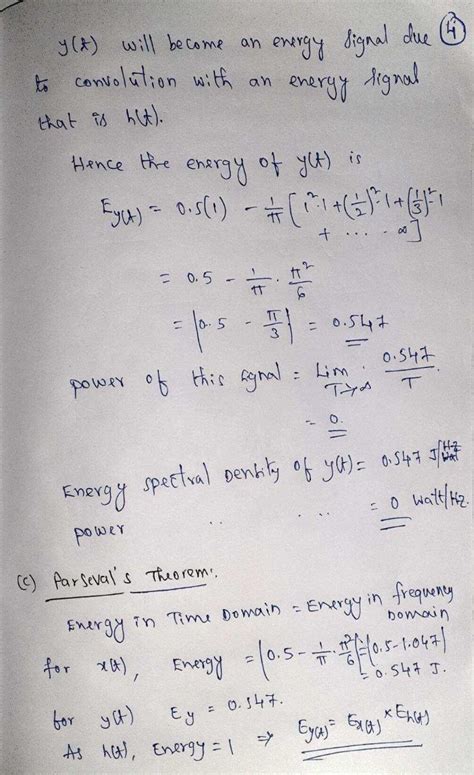 y(t) will become an energy signal due ④
to convolution with an energy signal
that is h(t).
Hence the energy of y(t) is
Ey(t) = 0.5(1) - 1/π [1²·1 + (1/2)²·1 + (1/3)²·1
+ ..... ∞]
= 0.5 - 1/π · π²/6
= |0.5 - π/3| = 0.547
power of this signal = Lim T→∞ 0.547/T
= 0
Energy spectral Density of y(t) = 0.547 J/Hz
power .. .. .. = 0 watt/Hz.
(c) Parseval's Theorem:.
Energy in Time Domain = Energy in frequency
Domain
for x(t), Energy = |0.5 - 1/π · π²/6| = |0.5-1.047|
= 0.547 J.
for y(t) Ey = 0.547.
As h(t), Energy = 1 ⇒ Ey(t) = Ex(t) × Eh(t)